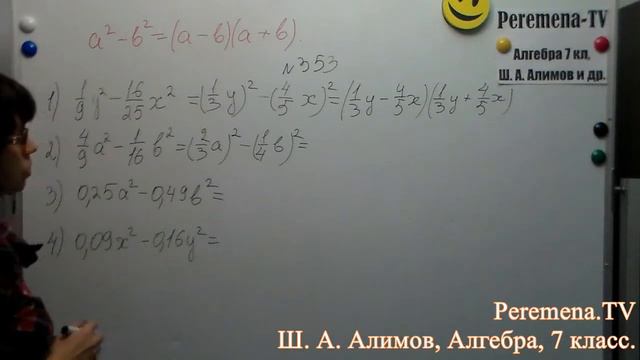 Peremena-TV
Алгебра 7 кл,
Ш. А. Алимов и др.
a² - b² = (a - b)(a + b).
№353
1) 1/9 y² - 16/25 x² = (1/3 y)² - (4/5 x)² = (1/3 y - 4/5 x)(1/3 y + 4/5 x)
2) 4/9 a² - 1/16 b² = (2/3 a)² - (1/4 b)² =
3) 0,25a² - 0,49b² =
4) 0,09x² - 0,16y² =
Peremena.TV
Ш. А. Алимов, Алгебра, 7 класс.